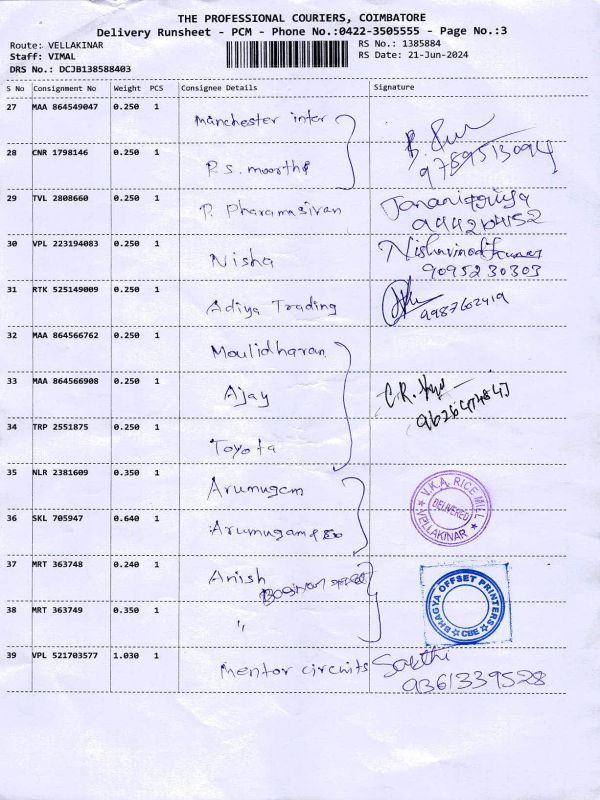 THE PROFESSIONAL COURIERS, COIMBATORE
Delivery Runsheet - PCM - Phone No.:0422-3505555 - Page No.:3
Route: VELLAKINAR
RS No.: 1385884
Staff: VIMAL
RS Date: 21-Jun-2024
DRS No.: DCJB138588403
S No Consignment No Weight PCS Consignee Details Signature
27 MAA 864549047 0.250 1 Manchester inter
28 CNR 1798146 0.250 1 P.s. moorthi
9789513094
29 TVL 2808660 0.250 1 P. Pharamasivan
9442104152
30 VPL 223194083 0.250 1 Nisha Nishavinodkumar
9095230303
31 RTK 525149009 0.250 1 Adiya Trading 9987602419
32 MAA 864566762 0.250 1 Moulidharan
33 MAA 864566908 0.250 1 Ajay C.R.
34 TRP 2551875 0.250 1 Toyota
35 NLR 2381609 0.350 1 Arumugam
V.K.A. RICE MILL
DELIVERED
VELLAKINAR
36 SKL 705947 0.640 1 Arumugam & Co
37 MRT 363748 0.240 1 Anish
BHAGYA OFFSET PRINTERS
CBE
38 MRT 363749 0.350 1 "
39 VPL 521703577 1.030 1 Mentor circuits Sakthi
9361339528